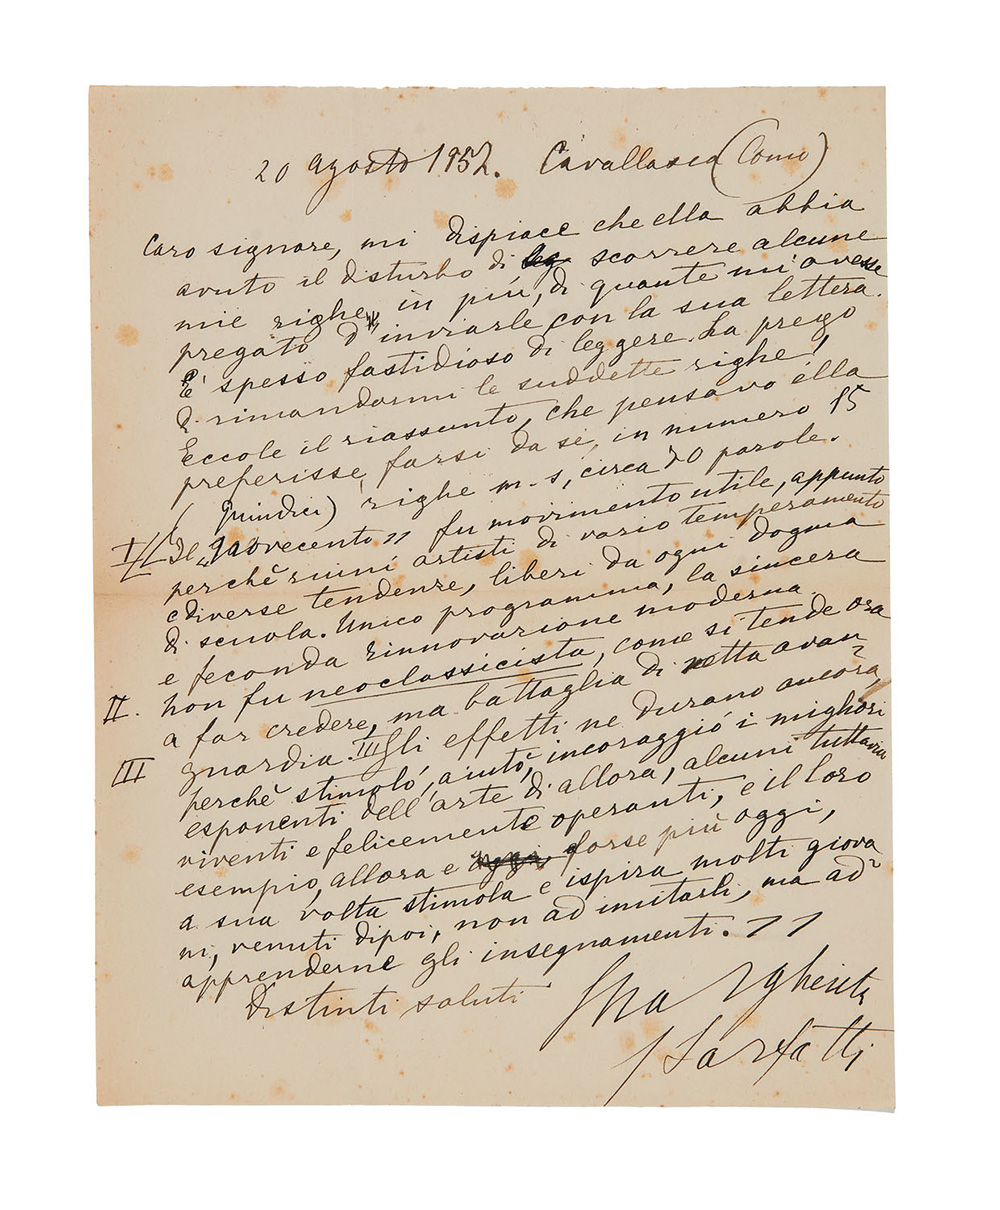 20 agosto 1952. Cavallasca (Como)
Caro signore, mi dispiace che ella abbia
avuto il disturbo di scorrere alcune
mie righe, in più, di quante mi avesse
pregato d'inviarle con la sua lettera.
È spesso fastidioso di leggere. La prego
di rimandarmi le suddette righe!
Eccole il riassunto, che pensavo ella
preferisse farsi da sé, in numero 15
(quindici) righe m-s, circa 70 parole.
I/ Il „Novecento„ fu movimento utile, appunto
perchè riunì artisti di vario temperamento
e diverse tendenze, liberi da ogni dogma
di scuola. Unico programma, la sincera
e feconda rinnovazione moderna.
II. Non fu neoclassicista, come si tende ora
a far credere, ma battaglia di netta avan-
III guardia. III Gli effetti ne durano ancora,
perchè stimolò, aiutò, incoraggiò i migliori
esponenti dell'arte di allora, alcuni tuttavia
viventi e felicemente operanti, e il loro
esempio, allora e forse più oggi,
a sua volta stimola e ispira molti giova-
ni, venuti dipoi, non ad imitarli, ma ad
apprenderne gli insegnamenti. „
Distinti saluti
Margherita
Sarfatti